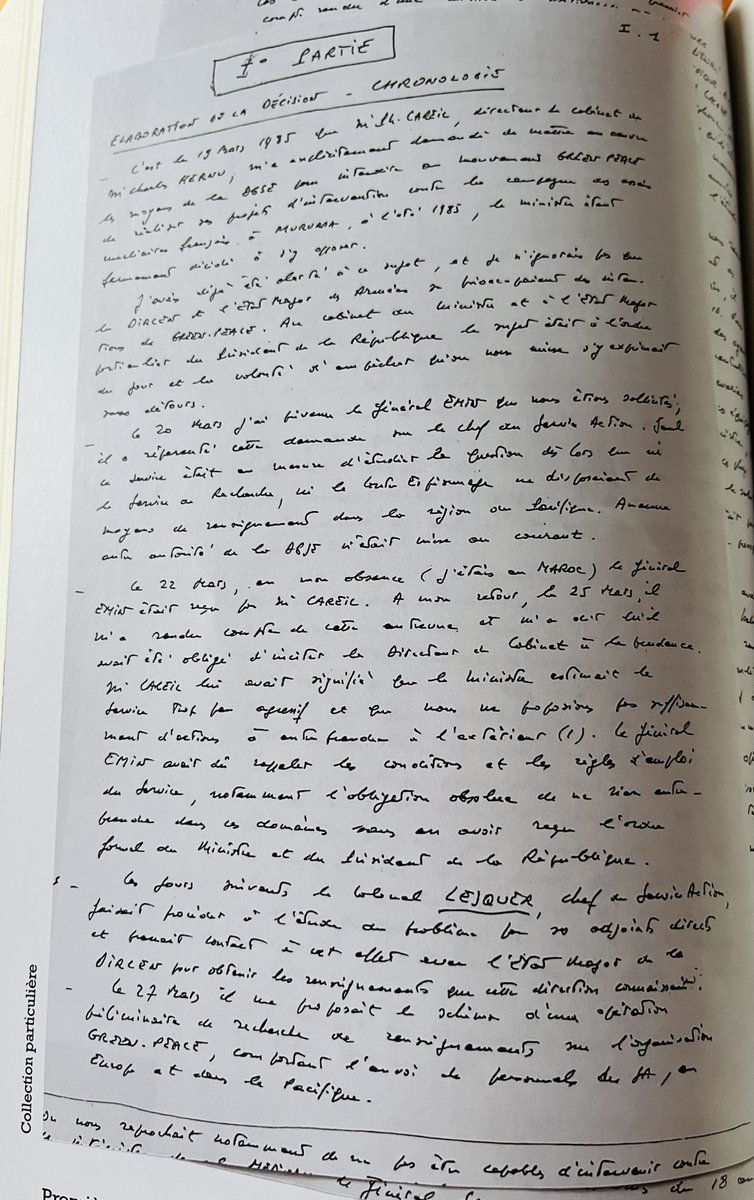 I.1
I° PARTIE
ELABORATION DE LA DÉCISION - CHRONOLOGIE
- C'est le 19 Mars 1985 que Mr Ph. CAREIL, directeur de cabinet de
Mr Charles HERNU, m'a explicitement demandé de mettre en oeuvre
les moyens de la DGSE pour interdire au mouvement GREEN-PEACE
de réaliser ses projets d'intervention contre la campagne des essais
nucléaires français à MURUROA, à l'été 1985, le ministre étant
fermement décidé à s'y opposer.
J'avais déjà été alerté à ce sujet, et je n'ignorais pas que
la DIRCEN et l'Etat Major des Armées se préoccupaient des inten-
tions de GREEN-PEACE. Au cabinet du ministre et à l'Etat Major
particulier du Président de la République le sujet était à l'ordre
du jour et la volonté d'empêcher qu'on nous nuise s'y exprimait
sans détours.
- Le 20 Mars j'ai prévenu le général EMIN que nous étions sollicités;
il a répercuté cette demande sur le chef du Service Action. Seul
ce service était en mesure d'étudier la question dès lors que ni
le Service de Recherche, ni le Contre Espionnage ne disposaient de
moyens de renseignement dans la région du Pacifique. Aucune
autre autorité de la DGSE n'était mise au courant.
- Le 22 Mars, en mon absence (j'étais au MAROC) le Général
EMIN était reçu par Mr CAREIL. A mon retour, le 25 Mars, il
m'a rendu compte de cette entrevue et m'a dit qu'il
avait été obligé d'inciter le Directeur de Cabinet à la prudence.
Mr CAREIL lui avait signifié que le ministre estimait le
Service trop peu agressif et que nous ne proposions pas suffisam-
ment d'actions à entreprendre à l'extérieur (1). Le Général
EMIN avait dû rappeler les conditions et les règles d'emploi
du Service, notamment l'obligation absolue de ne rien entre-
prendre dans ces domaines sans en avoir reçu l'ordre
formel du Ministre et du Président de la République.
- Les jours suivants le Colonel LESQUER, chef du Service Action,
faisait procéder à l'étude du problème par ses adjoints directs
et prenait contact à cet effet avec l'Etat Major de la
DIRCEN pour obtenir les renseignements que cette direction connaissait.
- Le 27 Mars il me proposait le schéma d'une opération
préliminaire de recherche de renseignements sur l'organisation
GREEN-PEACE, comportant l'envoi de personnels du SA, en
Europe et dans le Pacifique.
on nous reprochait notamment de ne pas être capables d'intervenir contre
le Général
du 18
Collection particulière